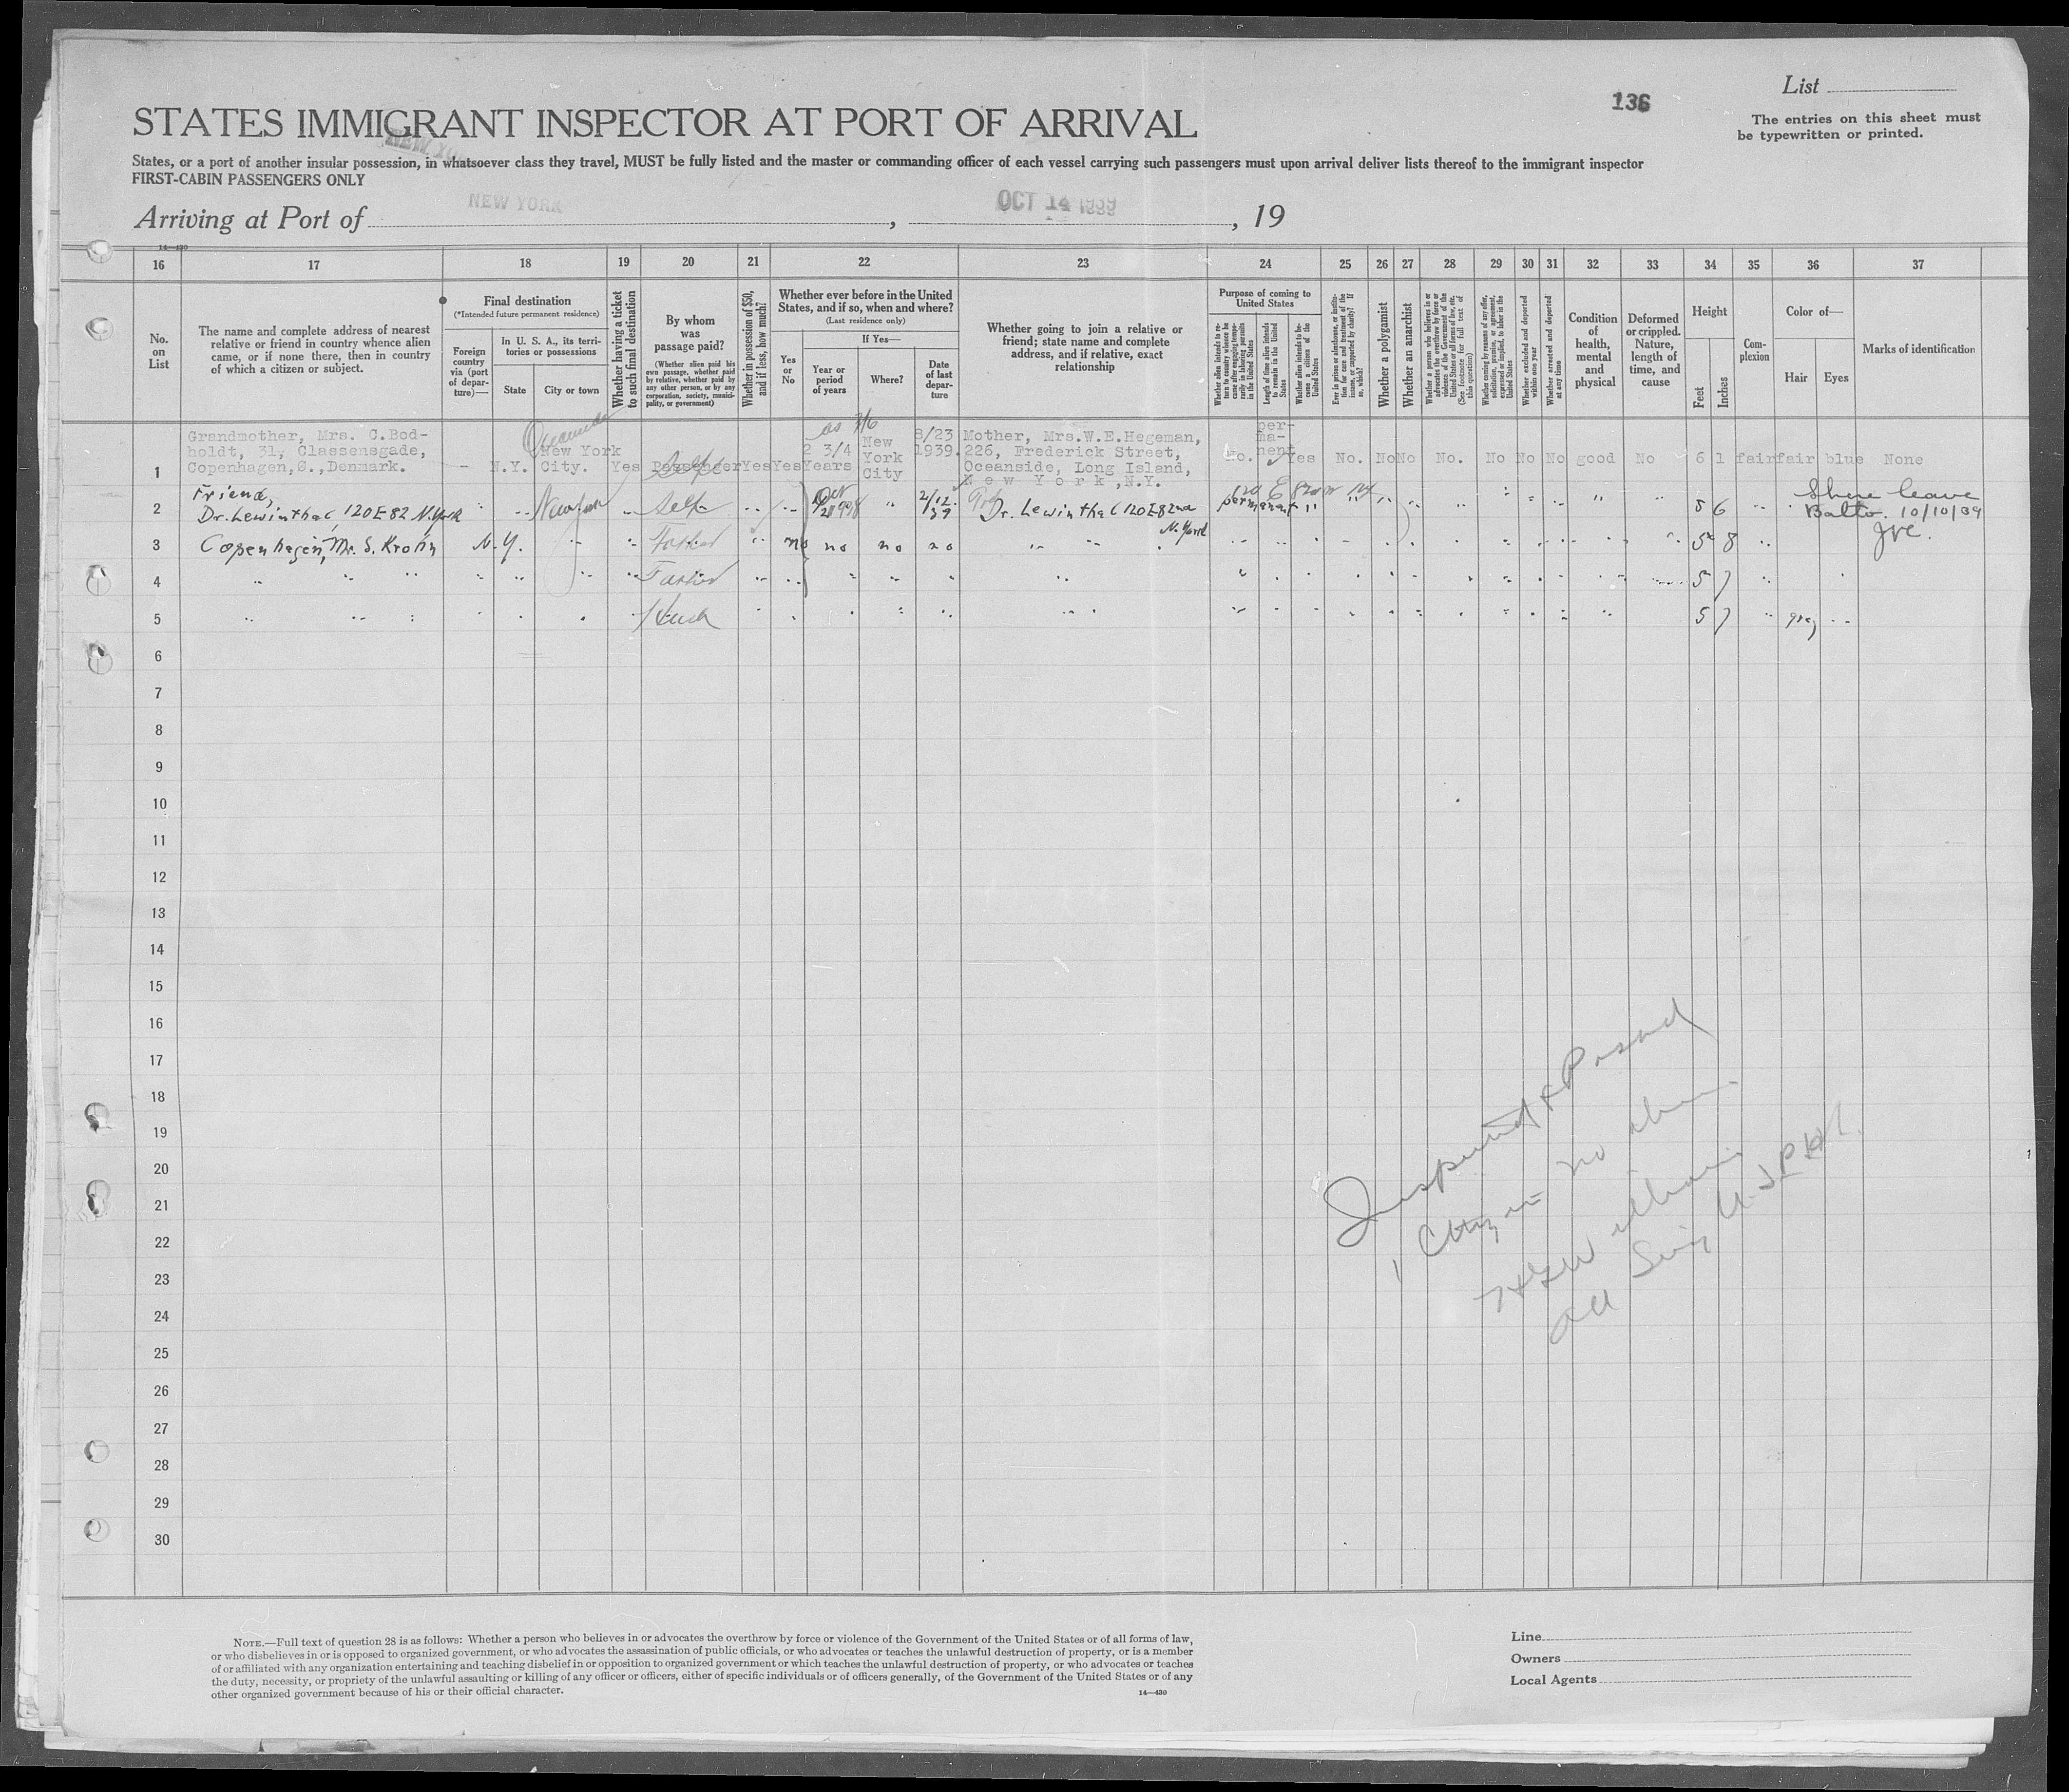 List
136
The entries on this sheet must
be typewritten or printed.
STATES IMMIGRANT INSPECTOR AT PORT OF ARRIVAL
States, or a port of another insular possession, in whatsoever class they travel, MUST be fully listed and the master or commanding officer of each vessel carrying such passengers must upon arrival deliver lists thereof to the immigrant inspector
FIRST-CABIN PASSENGERS ONLY
Arriving at Port of NEW YORK, OCT 14 1939, 19
14—430
16 17 18 19 20 21 22 23 24 25 26 27 28 29 30 31 32 33 34 35 36 37
No. on List
The name and complete address of nearest
relative or friend in country whence alien
came, or if none there, then in country
of which a citizen or subject.
Final destination
(*Intended future permanent residence)
Foreign country via (port of depar-ture)—
In U. S. A., its terri-tories or possessions
State
City or town
Whether having a ticket to such final destination
By whom was passage paid?
(Whether alien paid his own passage, whether paid by relative, whether paid by any other person, or by any corporation, society, munici-pality, or government)
Whether in possession of $50, and if less, how much?
Whether ever before in the United States, and if so, when and where?
(Last residence only)
Yes or No
If Yes—
Year or period of years
Where?
Date of last depar-ture
Whether going to join a relative or
friend; state name and complete
address, and if relative, exact
relationship
Purpose of coming to United States
Whether alien intends to re-turn to country whence he came after engaging tempo-rarily in laboring pursuits in the United States
Length of time alien intends to remain in the United States
Whether alien intends to be-come a citizen of the United States
Ever in prison or almshouse, or institu-tion for care and treatment of the insane, or supported by charity? If so, which?
Whether a polygamist
Whether an anarchist
Whether a person who believes in or advocates the overthrow by force or violence of the Government of the United States or all forms of law, etc. (See footnote for full text of this question)
Whether coming by reasons of any offer, solicitation, promise, or agreement, expressed or implied, to labor in the United States
Whether excluded and deported within one year
Whether arrested and deported at any time
Condition of health, mental and physical
Deformed or crippled. Nature, length of time, and cause
Height
Feet
Inches
Com-plexion
Color of—
Hair
Eyes
Marks of identification
Grandmother, Mrs. C.Bod-
holdt, 31, Classensgade,
Copenhagen,Ø.,Denmark.
1 - N.Y. New York City. Yes Passenger Self Yes Yes 2 3/4 Years New York City 8/23 1939.
Mother, Mrs.W.E.Hegeman,
226, Frederick Street,
Oceanside, Long Island,
N e w Y o r k ,N.Y.
No. per-ma-nent Yes No. No No No. No No No good No 6 1 fair fair blue None
Friend,
2 Dr. Lewinthal, 120 E 82 N. York " " New York " Self " " Oct " 2/12 39 Dr. Lewinthal 120 E 82nd N. York permanent " 5 6
Shore leave
Balto. 10/10/39
3 Copenhagen, Mr. S. Krohn N.Y. " " Father " no no no no " " 5 8
4 " " " " Father " " 5 7
5 " " " " " 5 7 grey " "
6
7
8
9
10
11
12
13
14
15
16
17
18
19
20
21
22
23
24
25
26
27
28
29
30
Inspected & Passed
1 Citizen no
All
NOTE.—Full text of question 28 is as follows: Whether a person who believes in or advocates the overthrow by force or violence of the Government of the United States or of all forms of law,
or who disbelieves in or is opposed to organized government, or who advocates the assassination of public officials, or who advocates or teaches the unlawful destruction of property, or is a member
of or affiliated with any organization entertaining and teaching disbelief in or opposition to organized government or which teaches the unlawful destruction of property, or who advocates or teaches
the duty, necessity, or propriety of the unlawful assaulting or killing of any officer or officers, either of specific individuals or of officers generally, of the Government of the United States or of any
other organized government because of his or their official character.
14—430
Line
Owners
Local Agents